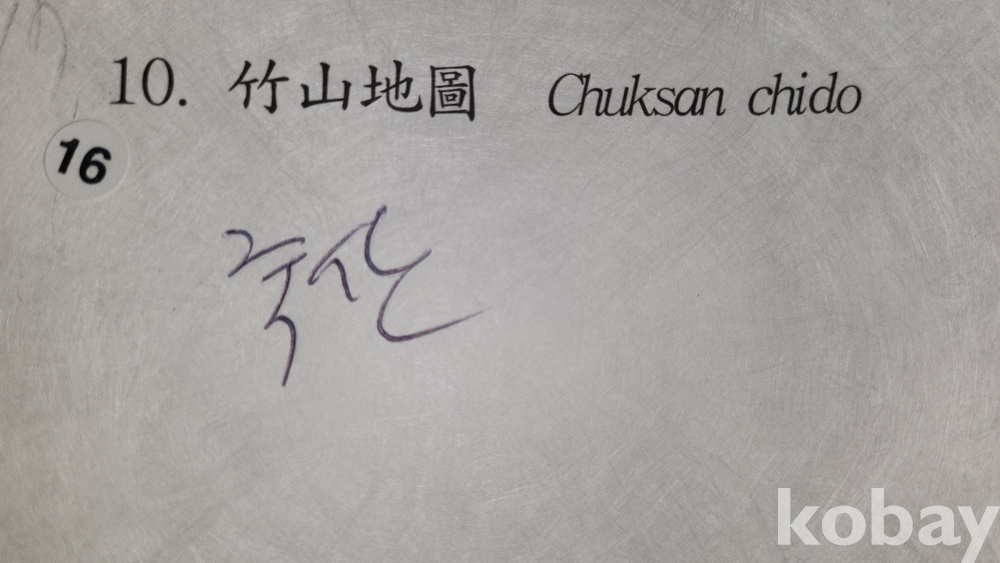 10. 竹山地圖 Chuksan chido
16
죽산
kobay